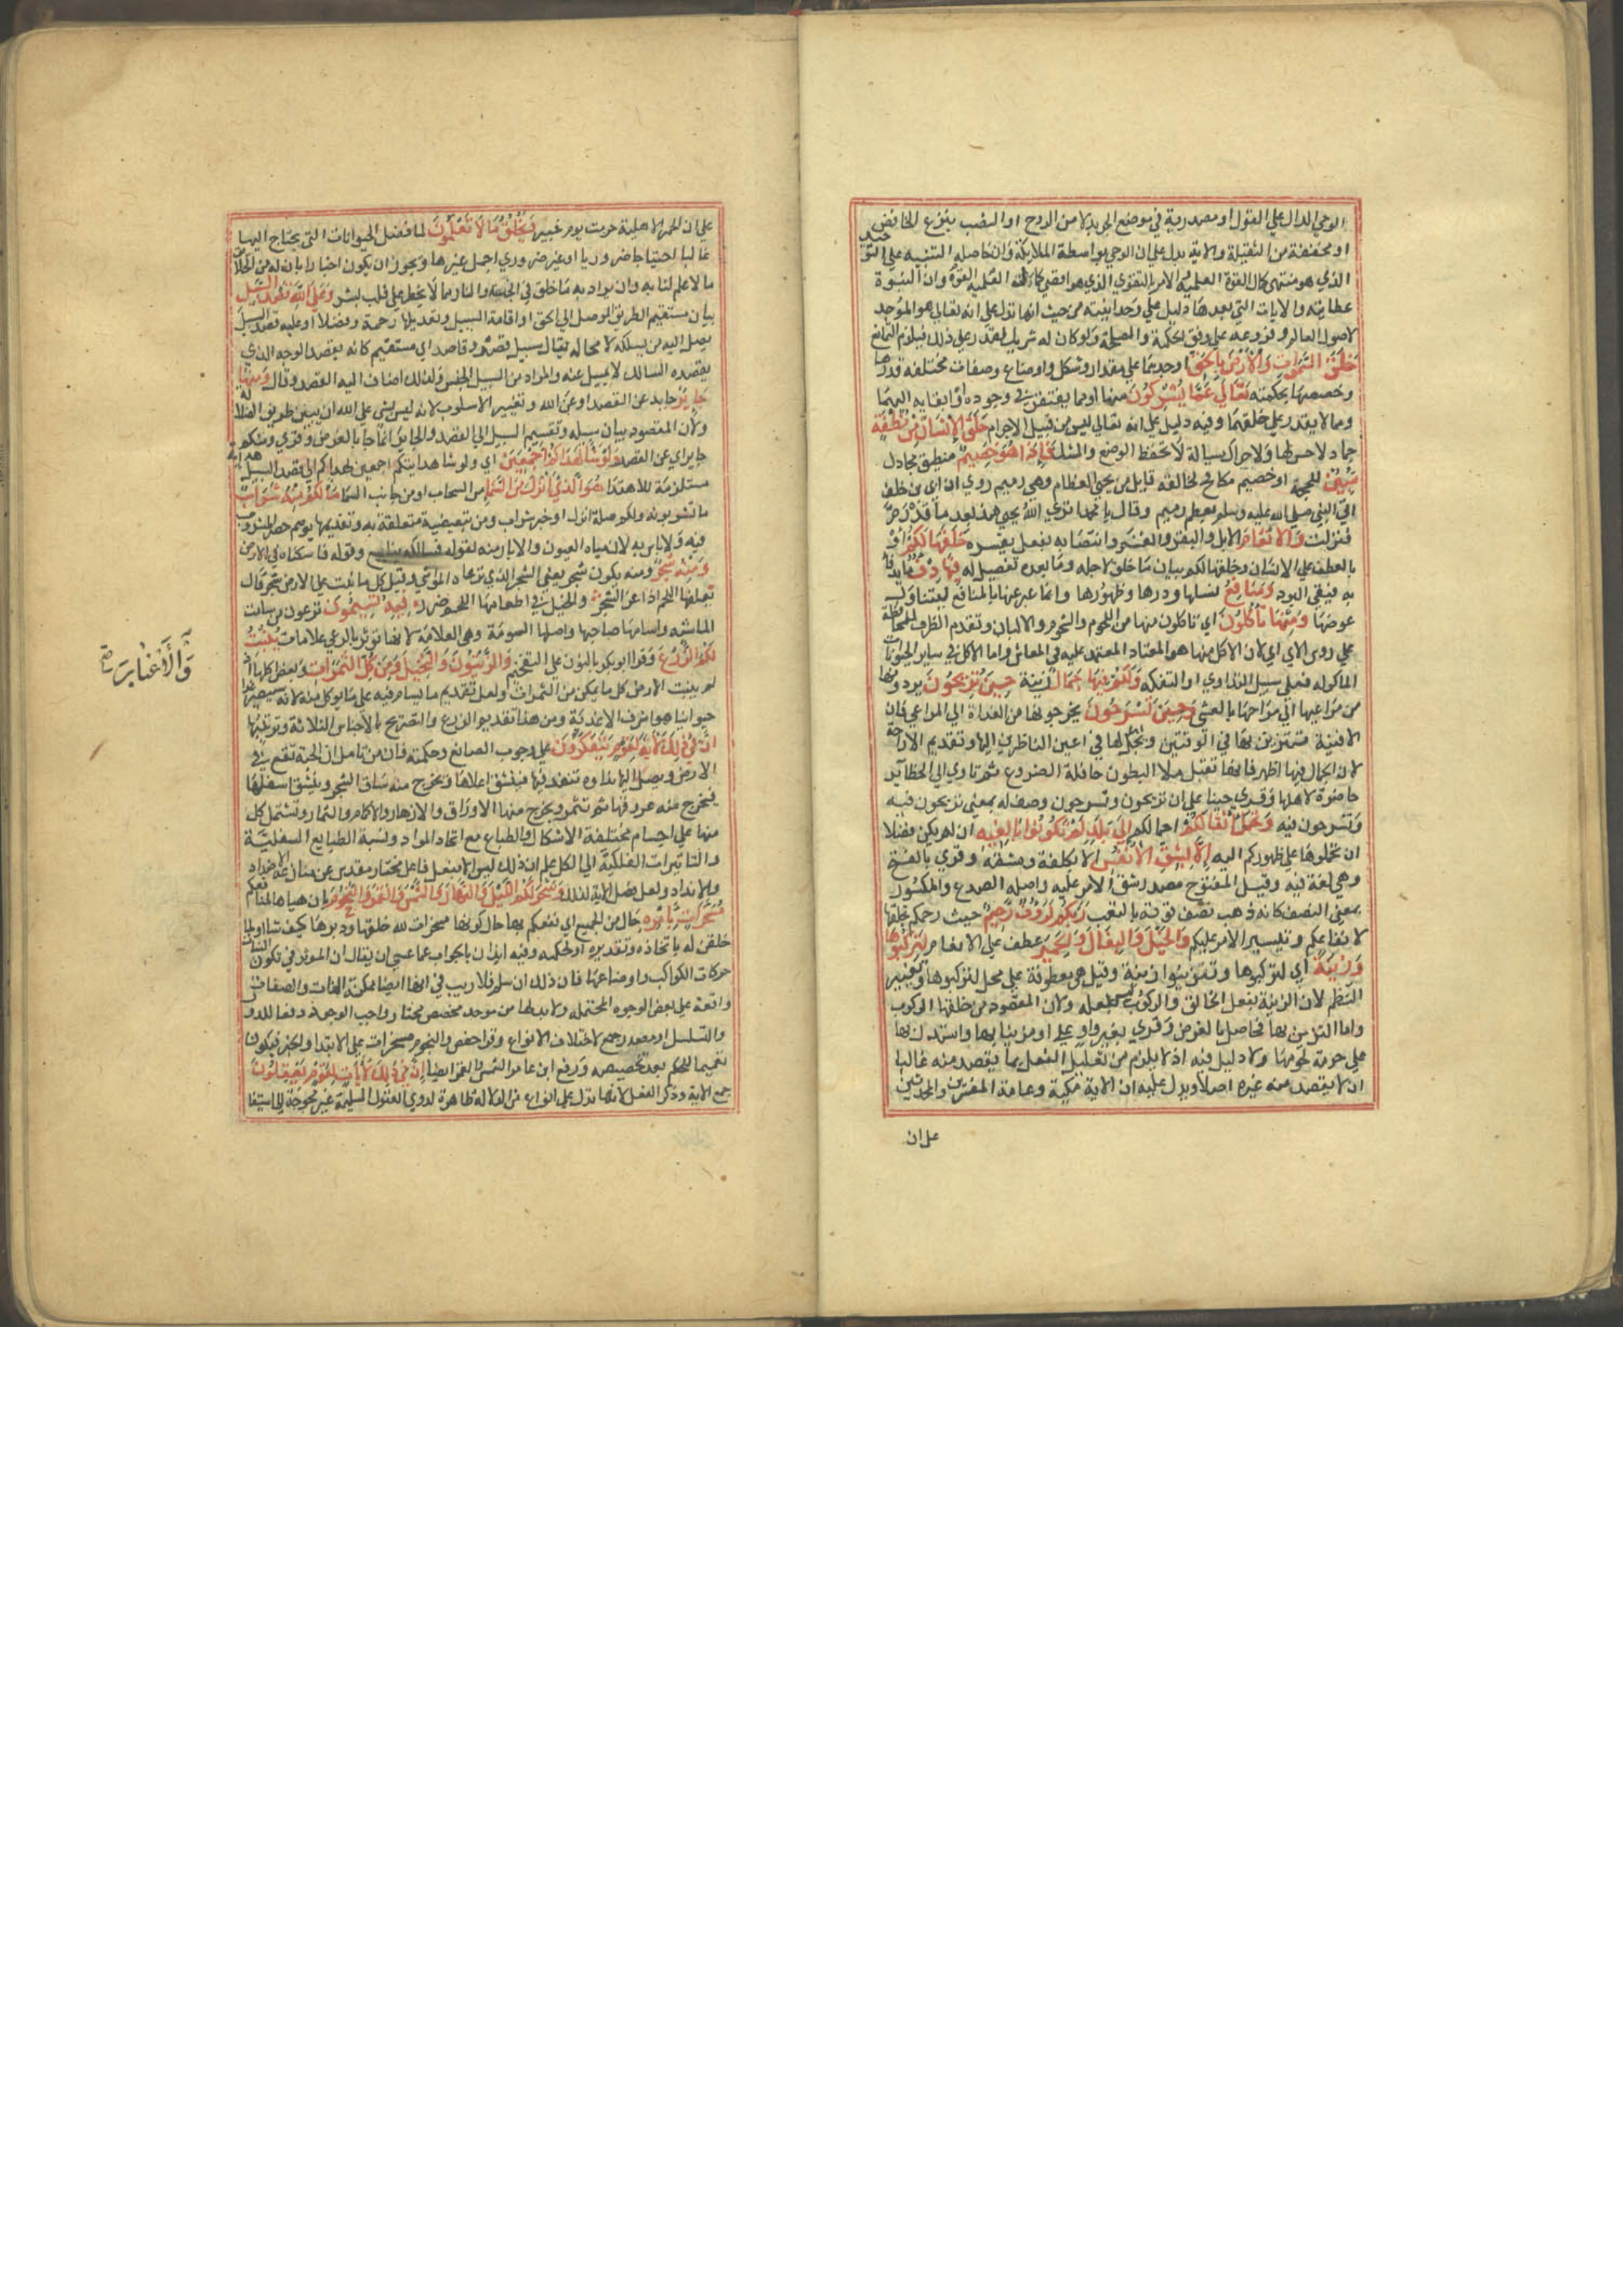 الوحي الدال علي القول او مصدرية في موضع الجر بدلا من الروح او النصب بنزع الخافض
او مخففة من الثقيلة والاية تدل علي ان الوحي بواسطة الملائكة وان حاصله التنبيه علي التوحيد
الذي هو منتهي كمال القوة العلمية والامر بالتقوي الذي هو اقصي كمال القوة العملية وان النبوة
عطايية والايات التي بعدها دليل علي وحدانيته من حيث انها تدل علي انه تعالي هو الموجد
لاصول العالم وفروعه علي وفق الحكمة والمصلحة ولو كان له شريك لقدر علي ذلك فيلزم التمانع
خَلَقَ السَّمَوَاتِ وَالْأَرْضَ بِالْحَقِّ اوجدهما علي مقدار وشكل واوضاع وصفات مختلفة قدرها
وخصصها بحكمته تَعَالَي عَمَّا يُشْرِكُونَ منهما او مما يفتقر في وجوده او بقايه اليهما
ومما لا يقدر علي خلقهما وفيه دليل علي انه تعالي ليس من قبيل الاجرام خَلَقَ الْإِنْسَانَ مِنْ نُطْفَةٍ
جماد لا حس لها ولا حراك سيالة لا تحفظ الوضع والشكل فَإِذَا هُوَ خَصِيمٌ منطيق مجادل
مُبِينٌ للحجة او خصيم مكافح لخالقه قايل من يحيي العظام وهي رميم روي ان ابي بن خلف
اتي النبي صلي الله عليه وسلم بعظم رميم وقال يا محمد اتري الله يحيي هذا بعد ما قد رم
فنزلت وَالْأَنْعَامَ الابل والبقر والغنم وانتصابه بفعل يفسره خَلَقَهَا لَكُمْ او
بالعطف علي الانسان وخلقها لكم بيان ما خلق لاجله وما بعده تفصيل له فِيهَا دِفْءٌ ما يدفأ
به فيقي البرد وَمَنَافِعُ نسلها ودرها وظهورها وانما عبر عنها بالمنافع ليتناول
عوضها وَمِنْهَا تَأْكُلُونَ اي تاكلون منها من اللحوم والشحوم والالبان وتقديم الظرف للمحافظة
علي روس الاي او لان الاكل منها هو المعتاد المعتمد عليه في المعاش واما الاكل من ساير الحيوانات
الماكولة فعلي سبيل التداوي او التفكه وَلَكُمْ فِيهَا جَمَالٌ زينة حِينَ تُرِيحُونَ تردونها
من مراعيها الي مراحها بالعشي وَحِينَ تَسْرَحُونَ تخرجونها من الغداة الي المراعي فان
الافنية تتزين بها في الوقتين ويجل اهلها في اعين الناظرين اليها وتقديم الاراحة
لان الجمال فيها اظهر فانها تقبل ملأ البطون حافلة الضروع ثم تاوي الي الحظاير
حاضرة لاهلها وقري حينا علي ان تريحون وتسرحون وصف له بمعني تريحون فيه
وتسرحون فيه وَتَحْمِلُ أَثْقَالَكُمْ احمالكم إِلَي بَلَدٍ لَمْ تَكُونُوا بَالِغِيهِ ان لم يكن فضلا
ان تحملوها علي ظهوركم اليه إِلَّا بِشِقِّ الْأَنْفُسِ الا بكلفة ومشقة وقري بالفتح
وهي لغة فيه وقيل المفتوح مصدر شق الامر عليه واصله الصدع والمكسور
بمعني النصف كانه ذهب نصف قوته بالتعب رَبَّكُمْ لَرَؤُفٌ رَحِيمٌ حيث رحمكم بخلقها
لانتفاعكم وتيسير الامر عليكم وَالْخَيْلَ وَالْبِغَالَ وَالْحَمِيرَ عطف علي الانعام لِتَرْكَبُوهَا
وَزِينَةً اي لتركبوها وتتزينوا زينة وقيل هي معطوفة علي محل لتركبوها وتغيير
النظم لان الزينة بفعل الخالق والركوب ليس بفعله ولان المقصود من خلقها الركوب
واما التزين بها فحاصل بالعرض وقري بغير واو علي او متزينا بها واستدل بها
علي حرمة لحومها ولا دليل فيه اذ لا يلزم من تعليل الفعل بما يقصد منه غالبا
ان لا يقصد منه غيره اصلا ويدل عليه ان الاية مكية وعامة المفسرين والمحدثين
علي ان
علي ان الحمر الاهلية حرمت يوم خيبر وَيَخْلُقُ مَا لَا تَعْلَمُونَ لما فصل الحيوانات التي يحتاج اليها
غالبا احتياجا ضروريا او غير ضروري اجمل غيرها ويجوز ان يكون اخبارا بان له من الخلايق
ما لا علم لنا به وان يراد به ما خلق في الجنة والنار مما لا يخطر علي قلب بشر وَعَلَي اللَّهِ قَصْدُ السَّبِيلِ
بيان مستقيم الطريق الموصل الي الحق او اقامة السبيل وتعديلها رحمة وفضلا او عليه قصد السبيل
يصل اليه من يسلكه لا محالة يقال سبيل قصد وقاصد اي مستقيم كانه يقصد الوجه الذي
يقصده السالك لا يميل عنه والمراد من السبيل الجنس ولذلك اضاف اليه القصد وقال وَمِنْهَا
جَائِرٌ حايد عن القصد او عن الله وتغيير الاسلوب لانه ليس بحق علي الله ان يبين طريق الضلالة
ولان المقصود بيان سبيله وتقسيم السبيل الي القصد والجاير انما جا بالعرض وقري ومنكم
جاير اي عن القصد وَلَوْ شَاءَ لَهَدَاكُمْ أَجْمَعِينَ اي ولو شا هدايتكم اجمعين لهداكم الي قصد السبيل هداية
مستلزمة للاهتدا هُوَ الَّذِي أَنْزَلَ مِنَ السَّمَاءِ من السحاب او من جانب السما مَاءً لَكُمْ مِنْهُ شَرَابٌ
ما تشربونه ولكم صلة انزل او خبر شراب ومن تبعيضية متعلقة به وتقديمها يوهم حصر المشروب
فيه ولا باس به لان مياه العيون والابار منه لقوله فسلكه ينابيع وقوله فاسكناه في الارض
وَمِنْهُ شَجَرٌ ومنه يكون شجر يعني الشجر الذي ترعاه المواشي وقيل كل ما نبت علي الارض شجر قال
نعلفها اللحم اذا عز الشجر والخيل في اطعامها اللحم ضرر فِيهِ تُسِيمُونَ ترعون من سامت
الماشية واسامها صاحبها واصلها السومة وهي العلامة لانها توثر بالرعي علامات يُنْبِتُ
لَكُمْ بِهِ الزَّرْعَ وقرا ابو بكر بالنون علي التفخيم وَالزَّيْتُونَ وَالنَّخِيلَ وَمِنْ كُلِّ الثَّمَرَاتِ وبعض كلها اذ
وَالْأَعْنَابَ صح
لم ينبت الارض كل ما يمكن من الثمرات ولعل تقديم ما يسام فيه علي ما يوكل منه لانه سيصير
حيوانيا هو اشرف الاغذية ومن هذا تقديم الزرع والتصريح بالاجناس الثلاثة وترتيبها
إِنَّ فِي ذَلِكَ لَآيَةً لِقَوْمٍ يَتَفَكَّرُونَ علي وجوب الصانع وحكمته فان من تامل ان الحبة تقع في
الارض ويصل اليها نداوة تنفذ فيها فينشق اعلاها ويخرج منه ساق الشجر وينشق اسفلها
فيخرج منه عروقها ثم تنمو ويخرج منها الاوراق والازهار والاكمام والثمار وتشتمل كل
منها علي اجسام مختلفة الاشكال والطباع مع اتحاد المواد ونسبة الطبايع السفلية
والتاثيرات الفلكية الي الكل علم ان ذلك ليس الا بفعل فاعل مختار مقدس عن منازعة الاضداد
والانداد ولعل فصل الاية لذلك وَسَخَّرَ لَكُمُ اللَّيْلَ وَالنَّهَارَ وَالشَّمْسَ وَالْقَمَرَ وَالنُّجُومَ بان هياها لمنافعكم
مُسَخَّرَاتٍ بِأَمْرِهِ حال من الجميع اي نفعكم بها حال كونها مسخرات لله خلقها ودبرها كيف شا او لما
خلقن له بايجاده وتقديره او لحكمه وفيه ايذان بالجواب عما عسي ان يقال ان الموثر في تكون النبات
حركات الكواكب واوضاعها فان ذلك ان سلم فلا ريب في انها ايضا ممكنة الذات والصفات
واقعة علي بعض الوجوه المحتملة ولا بد لها من موجد مخصص مختار واجب الوجود دفعا للدور
والتسلسل او مصدر جمع لاختلاف الانواع وقرا حفص والنجوم مسخرات علي الابتدا والخبر فيكون
تعميما للحكم بعد تخصيصه ورفع ابن عامر الشمس والقمر ايضا إِنَّ فِي ذَلِكَ لَآيَاتٍ لِقَوْمٍ يَعْقِلُونَ
جمع الاية وذكر العقل لانها تدل علي انواع من الدلالة ظاهرة لذوي العقول السليمة غير محوجة الي استيفا